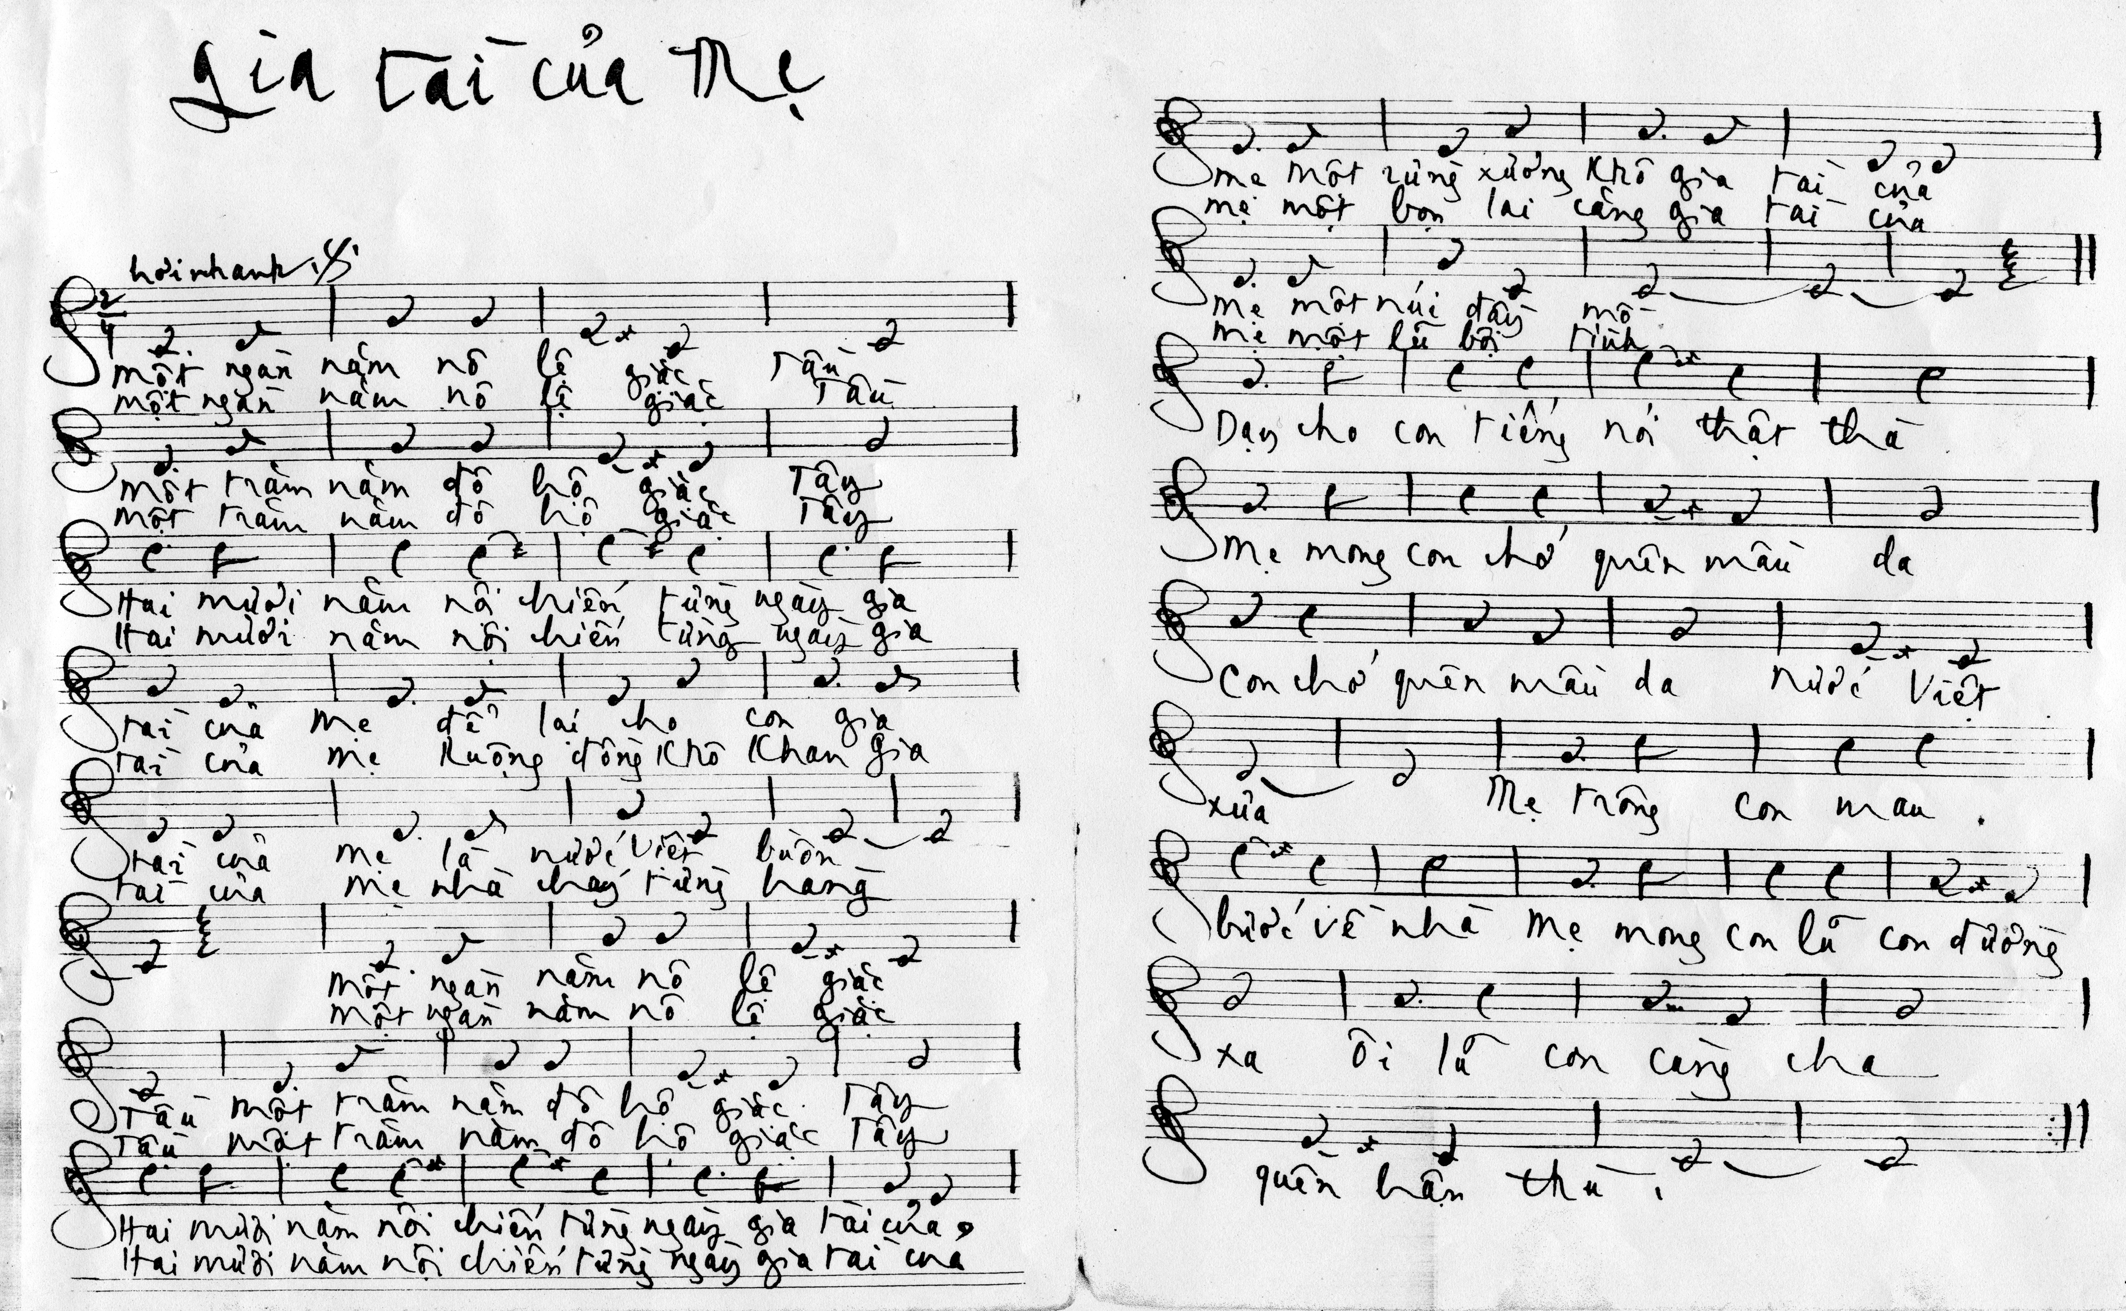 Gia tài của Mẹ
hơi nhanh
2/4
một ngàn năm nô lệ giặc Tầu
một ngàn năm nô lệ giặc Tầu
một trăm năm đô hộ giặc Tây
một trăm năm đô hộ giặc Tây
Hai mươi năm nội chiến từng ngày gia
Hai mươi năm nội chiến từng ngày gia
tài của Mẹ để lại cho con gia
tài của mẹ Ruộng đồng khô khan gia
tài của Mẹ là nước Việt buồn
tài của Mẹ nhà cháy từng hàng
Một ngàn năm nô lệ giặc
một ngàn năm nô lệ giặc
Tầu một trăm năm đô hộ giặc Tây
Tầu một trăm năm đô hộ giặc Tây
Hai mươi năm nội chiến từng ngày gia tài của
Hai mươi năm nội chiến từng ngày gia tài của
mẹ một rừng xương khô gia tài của
mẹ một bọn lai căng gia tài của
mẹ một núi đầy mồ
mẹ một lũ bội tình
Dạy cho con tiếng nói thật thà
Mẹ mong con chớ quên mầu da
Con chớ quên mầu da nước Việt
xưa Mẹ trông con mau
bước về nhà Mẹ mong con lũ con đường
xa Ôi lũ con cùng cha
quên hận thù.